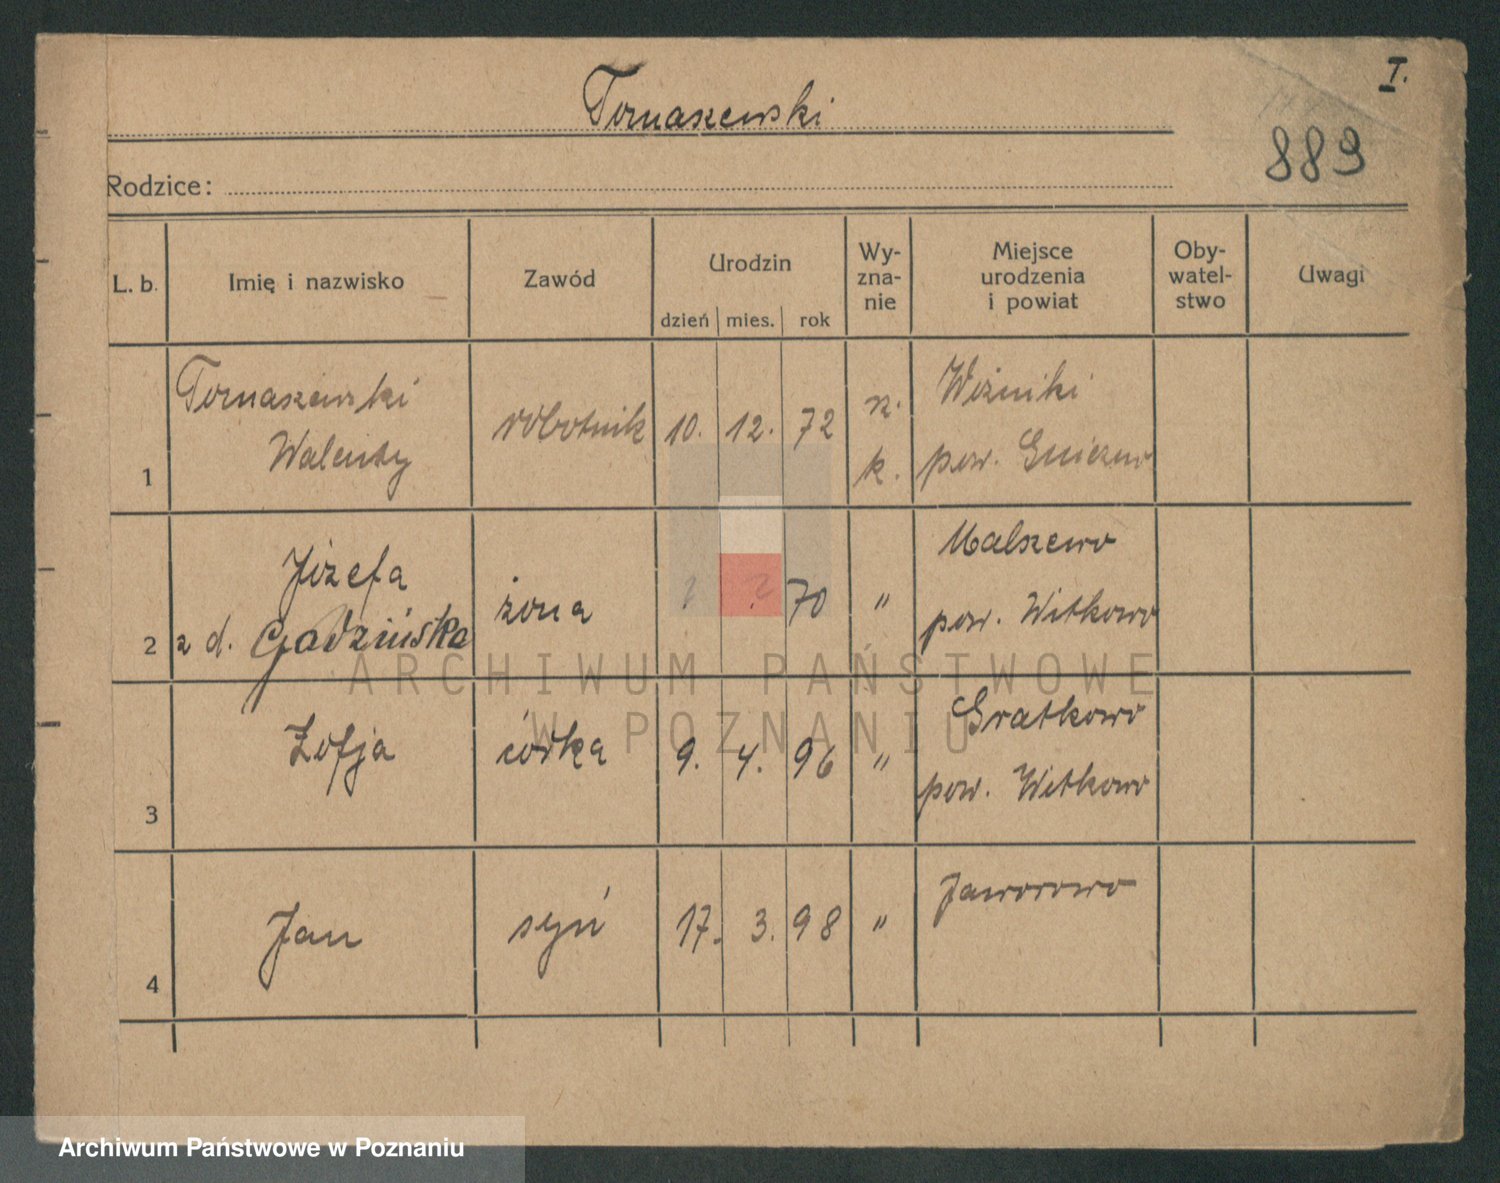 I.
Tomaszewski
889
Rodzice:
L. b. Imię i nazwisko Zawód Urodzin dzień mies. rok Wy-zna-nie Miejsce urodzenia i powiat Oby-watel-stwo Uwagi
Tomaszewski Woźniki
Walenty robotnik 10. 12. 72 rz.
1 k. pow. Gniezno
Józefa Malszewo
żona ? ? 70 " pow. Witkowo
2 z d. Gadzińska
Zofja córka 9. 4. 96 " Gratkowo
3 pow. Witkowo
Jan syn 17. 3. 98 " Jaworowo
4
ARCHIWUM PAŃSTWOWE
W POZNANIU
Archiwum Państwowe w Poznaniu